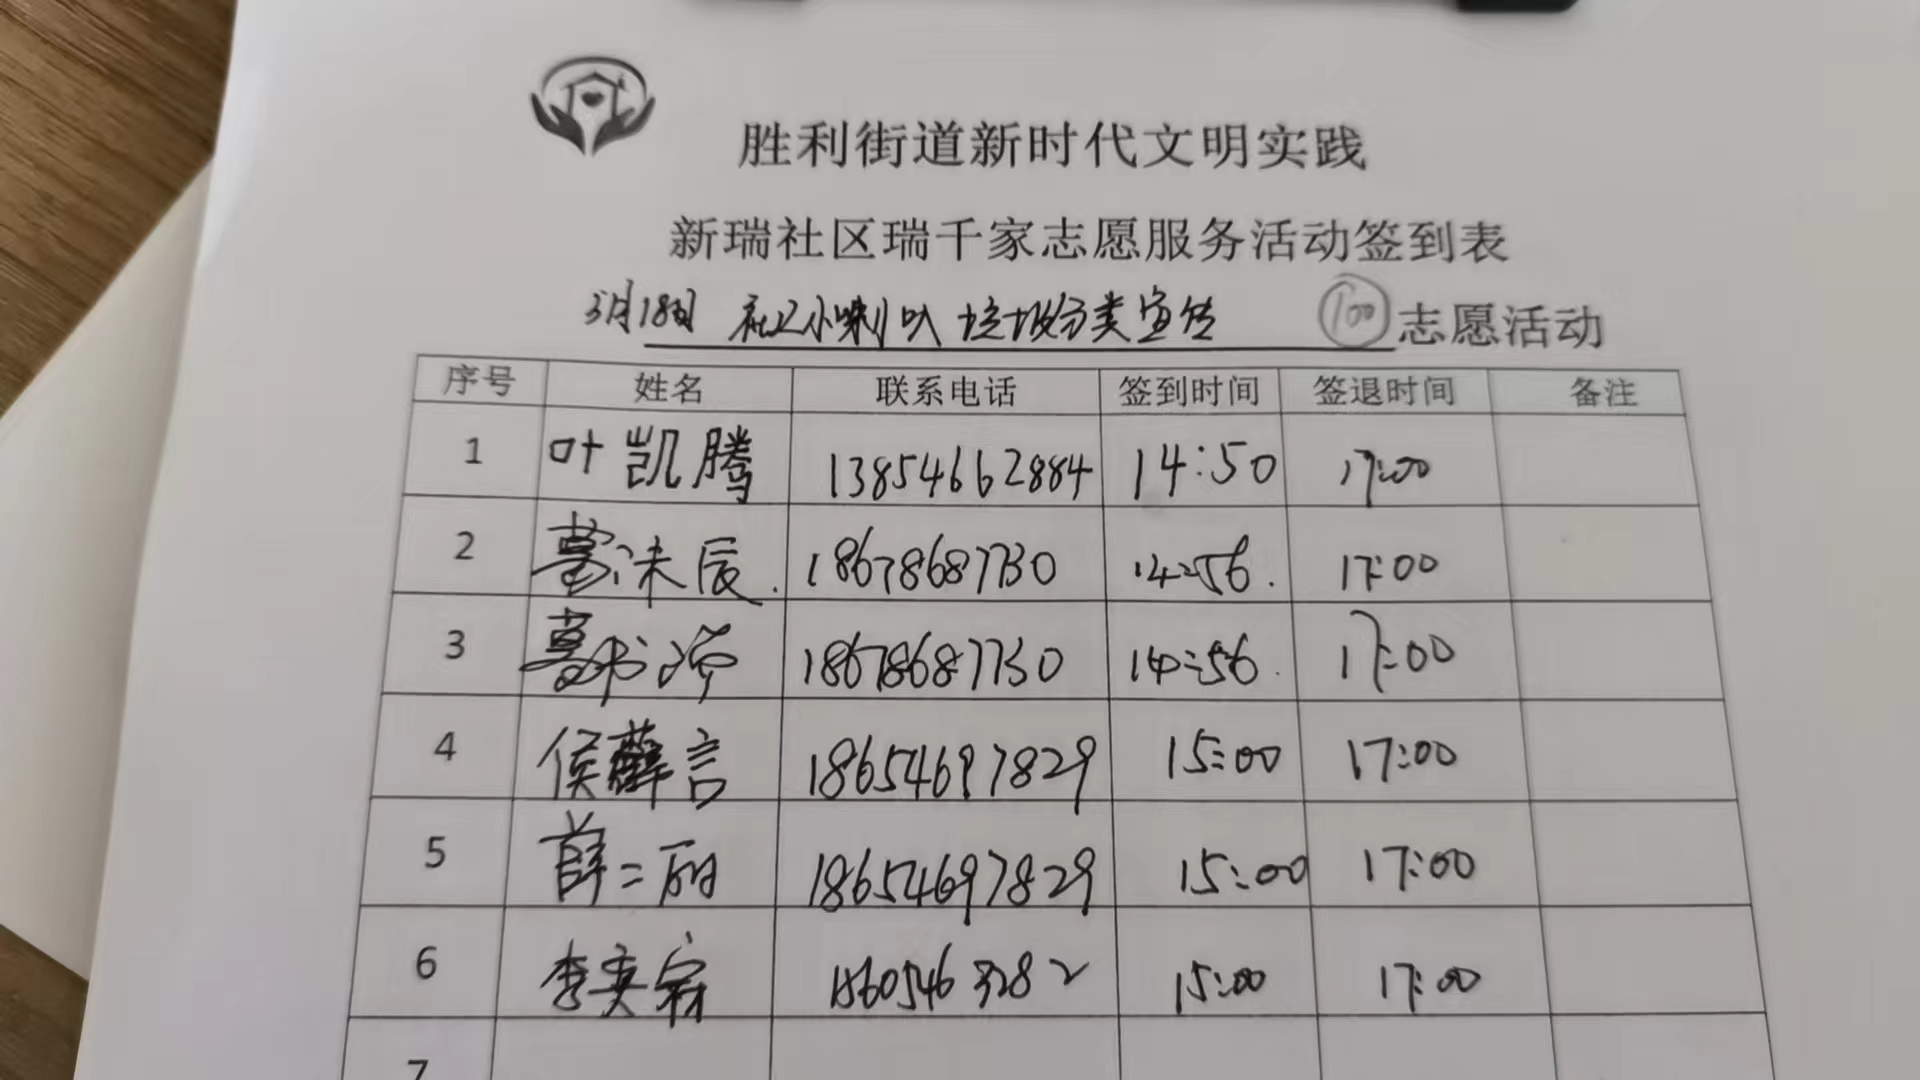 胜利街道新时代文明实践
新瑞社区瑞千家志愿服务活动签到表
3月18日 社区小喇叭 垃圾分类宣传 100 志愿活动
序号 姓名 联系电话 签到时间 签退时间 备注
1 叶凯腾 13854662884 14:50 17:00
2 葛沫辰 18678687730 14:56 17:00
3 葛书 18678687730 14:56 17:00
4 侯薛言 18654697829 15:00 17:00
5 薛二丽 18654697829 15:00 17:00
6 李奕霖 18605463282 15:00 17:00
7